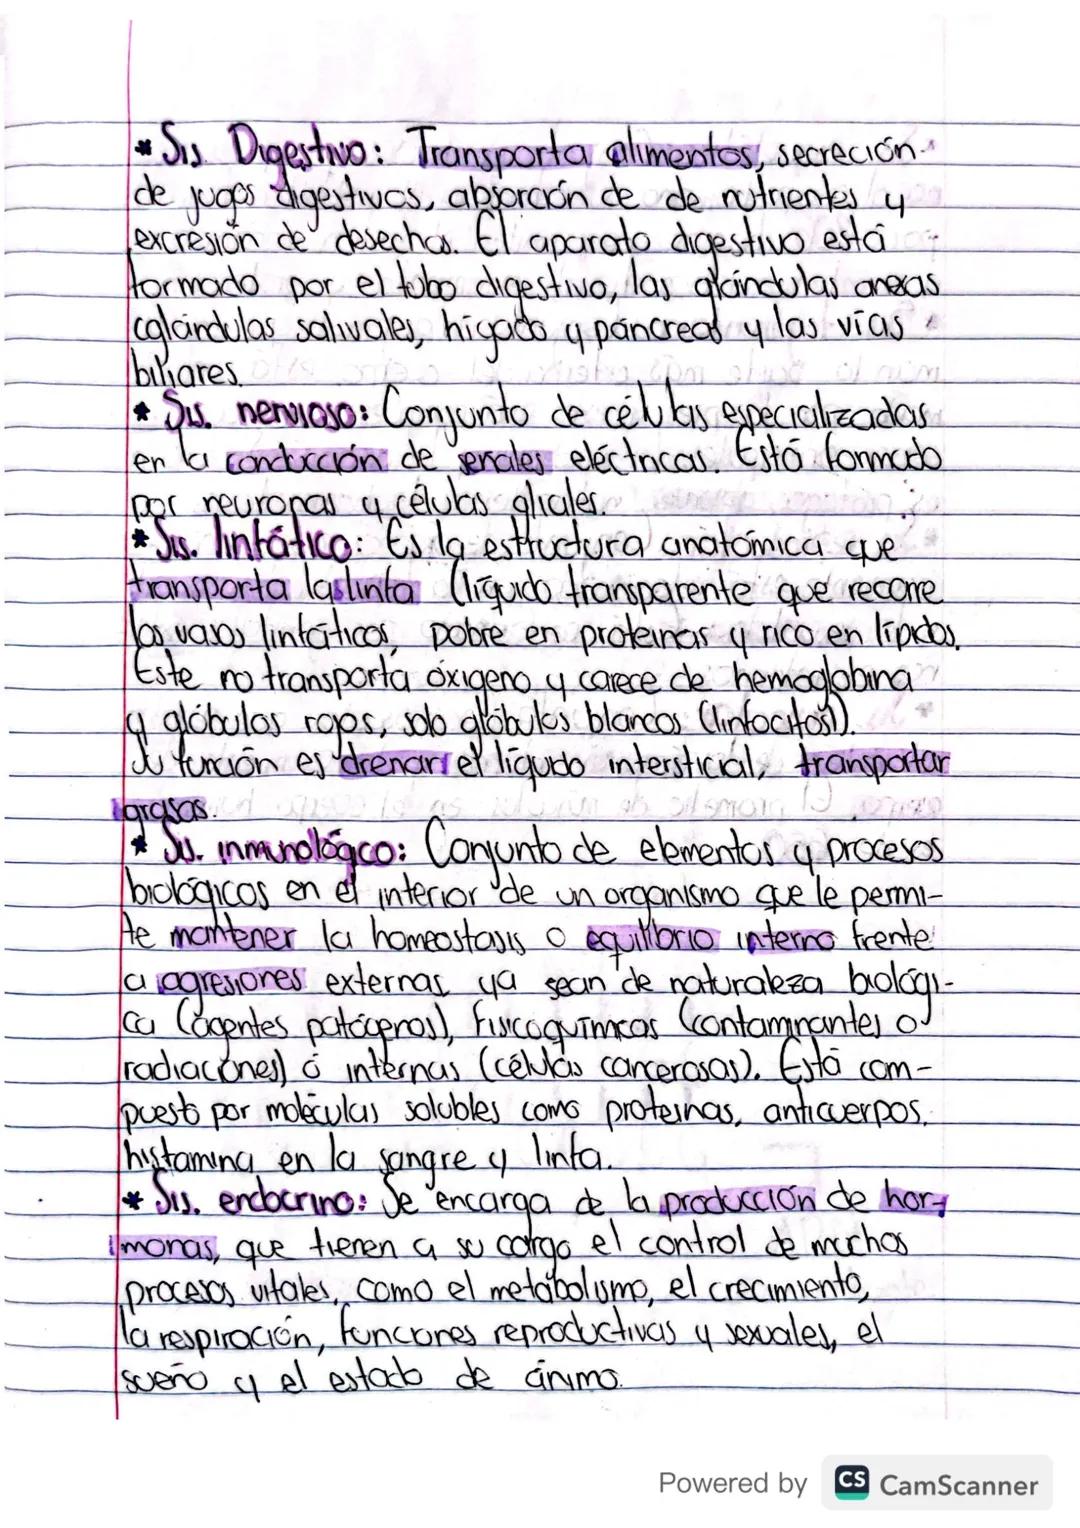 * Sis Digestivo: Transporta alimentos, secreción
de jugos digestivos, absorción de de nutrientes y
excresión de desechos. El aparato digestivo está
formado por el tubo digestivo, las glándulas anexas
(glándulas salivales, hígado y páncreas y las vías
biliares.
* Sis. nervioso: Conjunto de células especializadas
en la conducción de señales eléctricas. Está formado
por neuronas y células gliales.
* Sis. linfático: Es la estructura anatómica que
transporta la linfa (líquido transparente que recorre
los vasos linfáticos, pobre en proteinas y rico en lípidos.
Este no transporta óxigeno y carece de hemoglobina
y glóbulos rojos, solo glóbulos blancos (linfocitos)).
Su función es drenar el líquido intersticial, transportar
grasas.
* Sis. inmunológico: Conjunto de elementos y procesos
biológicos en el interior de un organismo que le permi-
te mantener la homeostasis o equilibrio interno frente
a agresiones externas ya sean de naturaleza biológi-
ca (agentes patógenos), fisicoquímicas (contaminantes o
radiaciones) ó internas (células cancerosas). Está com-
puesto por moléculas solubles como proteinas, anticuerpos,
histamina en la sangre y linfa.
* Sis. endocrino: Se encarga de la producción de hor-
monas, que tienen a su cargo el control de muchos
procesos vitales, como el metabolismo, el crecimiento,
la respiración, funciones reproductivas y sexuales, el
sueño y el estado de ánimo.
Powered by CS CamScanner